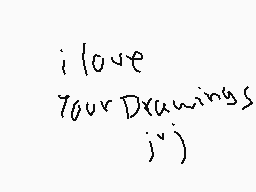 i love
Your Drawings
jvj